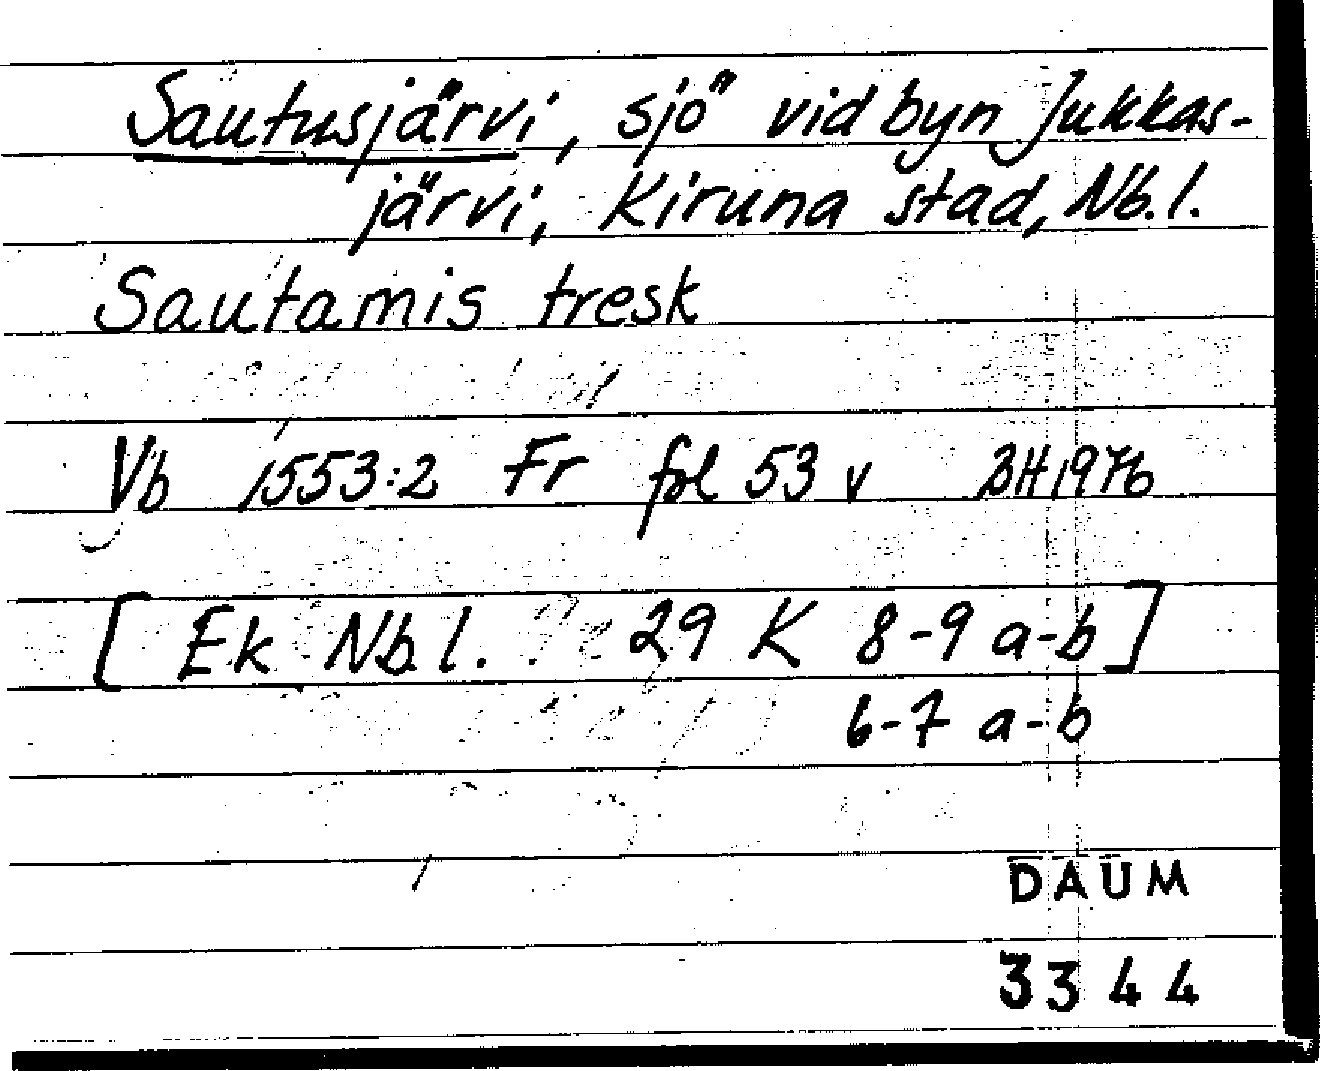 Sautusjärvi, sjö vid byn Jukkas-
järvi, Kiruna stad, Nb.l.
Sautamis tresk
Vb 1553:2 Fr fol 53 v BH 1976
[Ek Nb.l. 29 K 8-9 a-b]
6-7 a-b
DAUM
3344